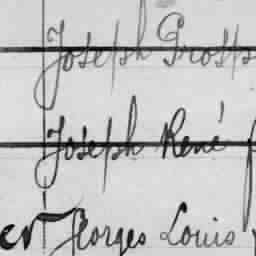 Joseph Prosp
Joseph René
er Georges Louis